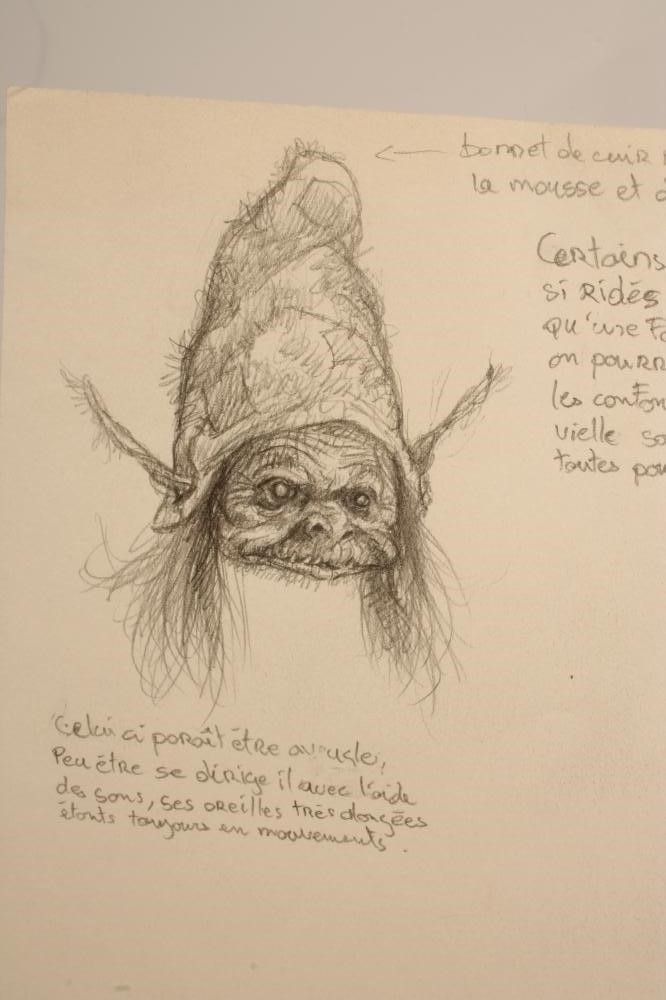 bonnet de cuir
la mousse et
Certains
si ridés
qu'une
on pourr
les confon
vielle
toutes pou
Celui ci paraît être aveugle,
Peu être se dirige il avec l'aide
des sons, ses oreilles très alongées
étants toujours en mouvements.